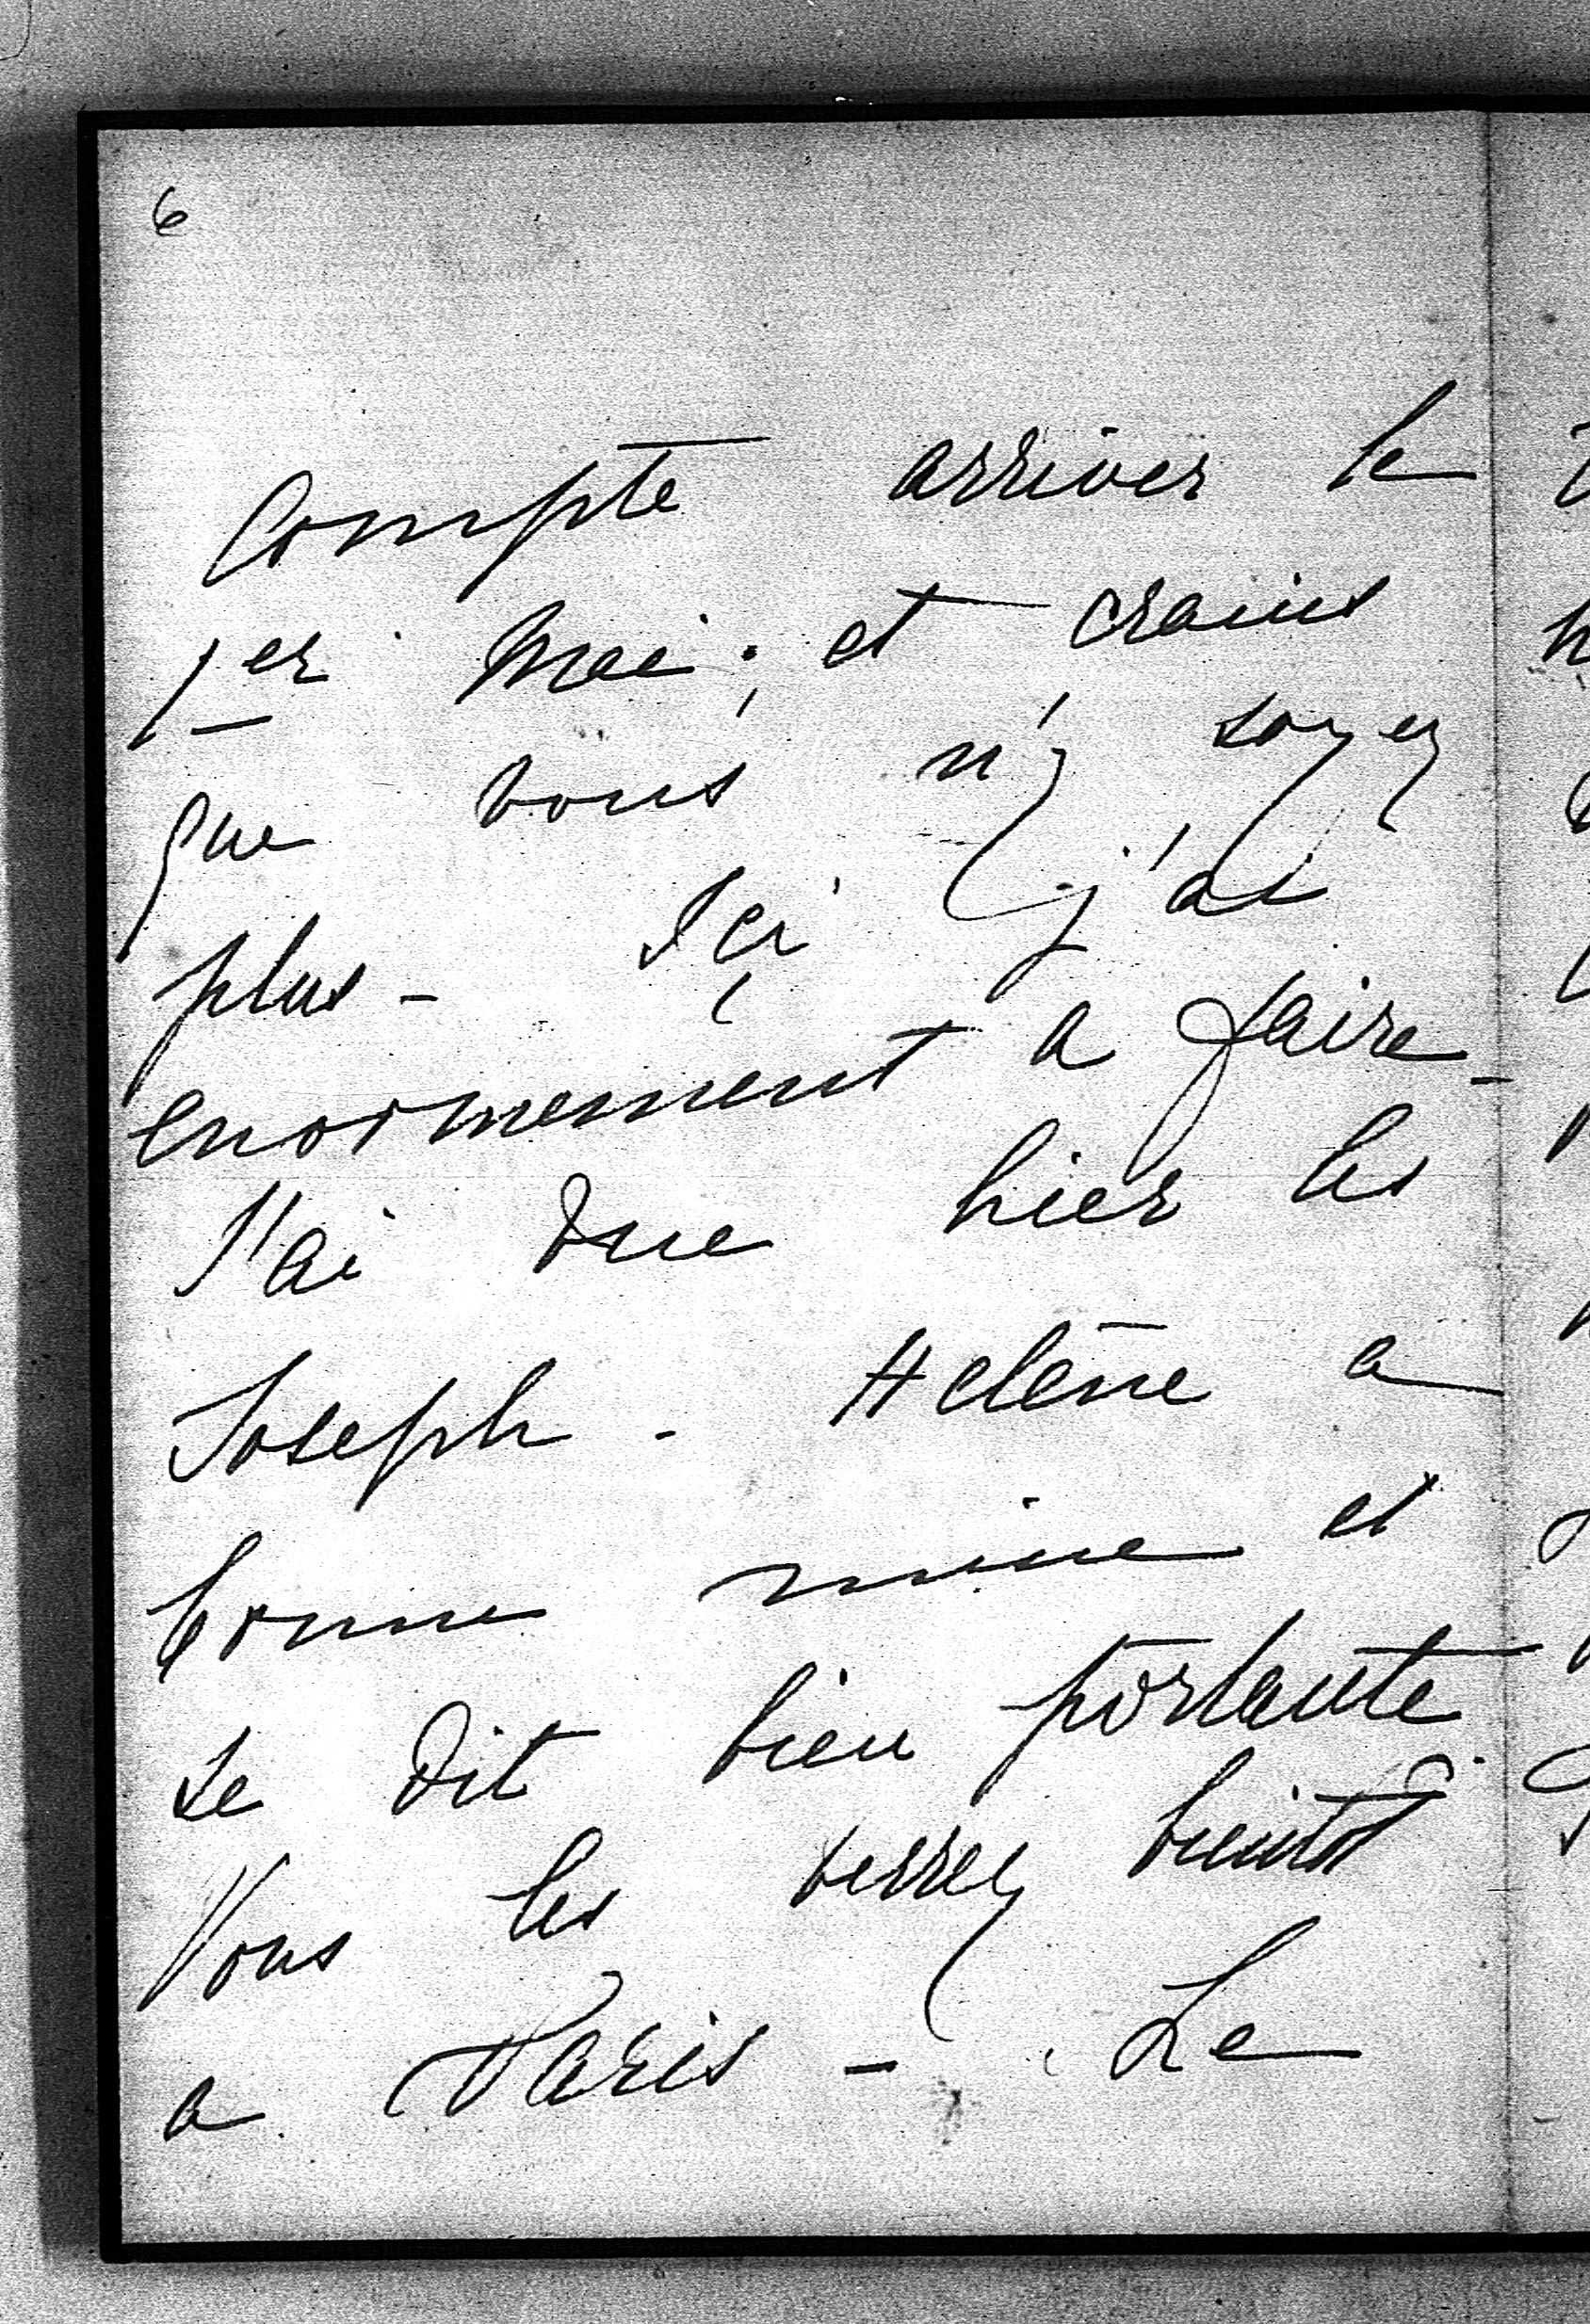 6
Compte arriver le
1er Mai; et crains
que vous n'y soyez
plus - Içi j'ai
enormement a faire -
J'ai vue hier les
Joseph - Helène a
bonne mine et
se dit bien portante
Vous les verrez bientôt
a Paris - Le